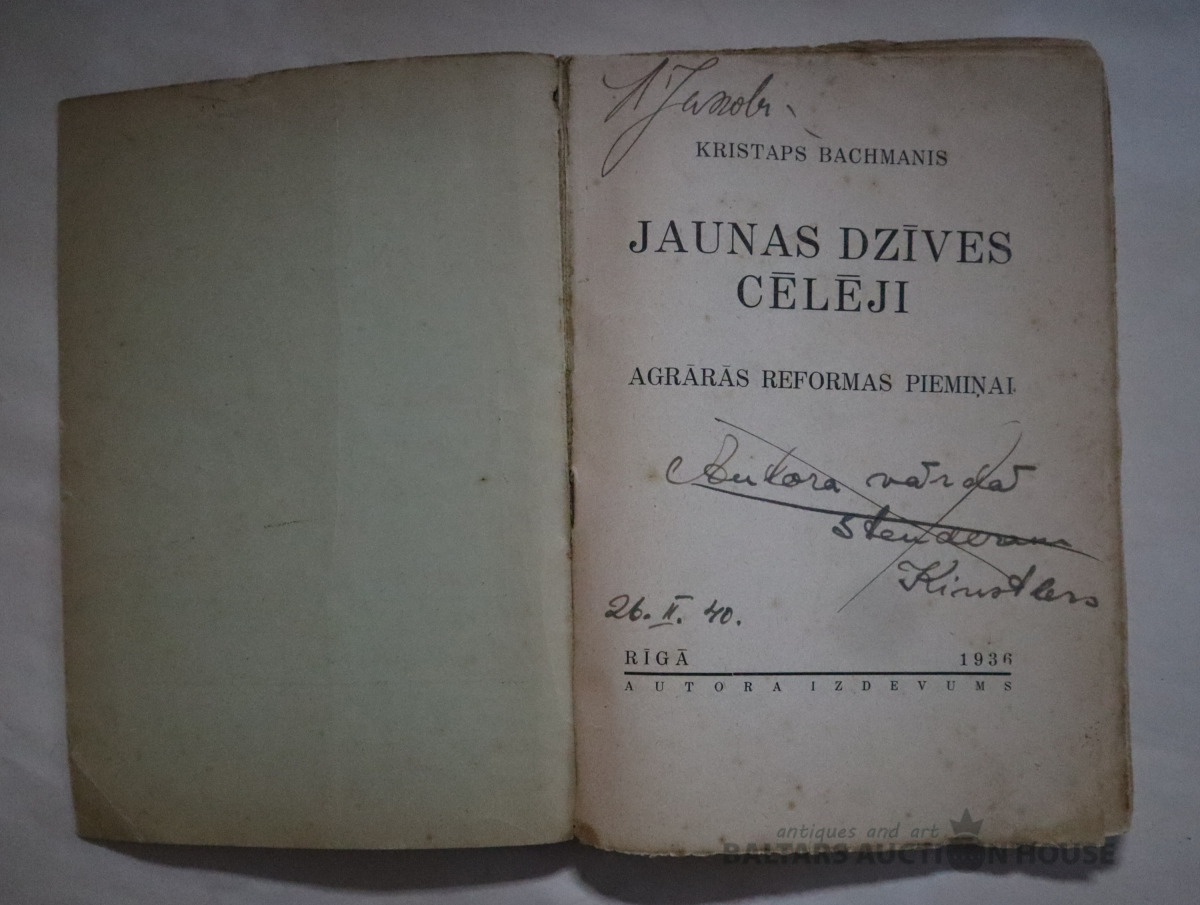 KRISTAPS BACHMANIS
JAUNAS DZĪVES
CĒLĒJI
AGRĀRĀS REFORMAS PIEMIŅAI
Autora vārdā
Kinstlers
26. II. 40.
RĪGĀ 1936
AUTORA IZDEVUMS
antiques and art
BALTARS AUCTION HOUSE